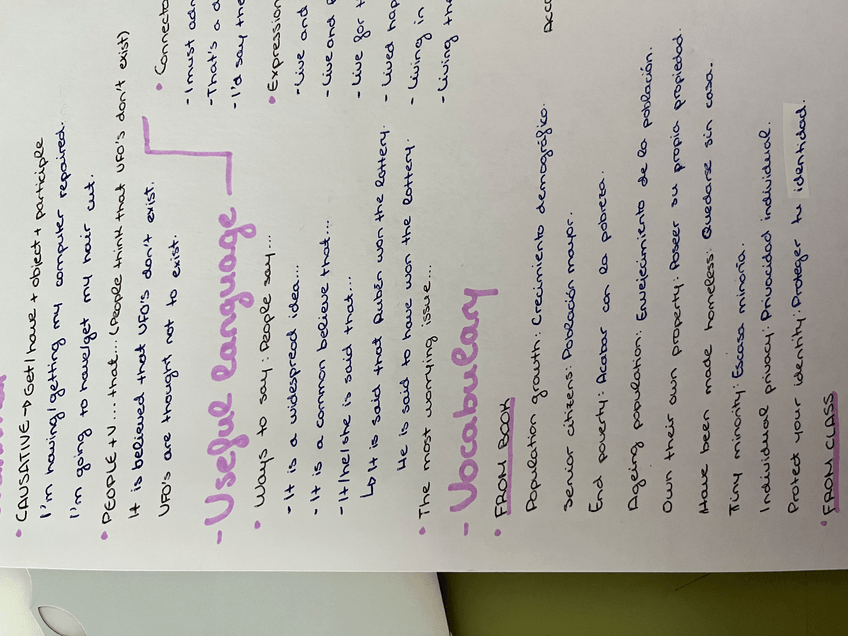 • CAUSATIVE → Get/have + object + participle
I'm having/getting my computer repaired.
I'm going to have/get my hair cut.
• PEOPLE + V... that... (People think that UFO's don't exist)
It is believed that UFO's don't exist.
UFO's are thought not to exist.
- Useful language
• Ways to say: People say...
- It is a widespread idea...
- It is a common believe that...
- It/he/she is said that...
↳ It is said that Rubén won the lottery.
He is said to have won the lottery.
• The most worrying issue...
• Connecto
- I must adm
- That's a d
- I'd say the
• Expression
- Live and
- Live and
- Live for t
- Lived hap
- Living in
- Living the
- Vocabulary
• FROM BOOK
Population growth: Crecimiento demográfico.
Senior citizens: Población mayor.
End poverty: Acabar con la pobreza.
Ageing population: Envejecimiento de la población.
Own their own property: Poseer su propia propiedad.
Have been made homeless: Quedarse sin casa.
Tiny minority: Escasa minoría.
Individual privacy: Privacidad individual.
Protect your identity: Proteger tu identidad.
• FROM CLASS
Acc